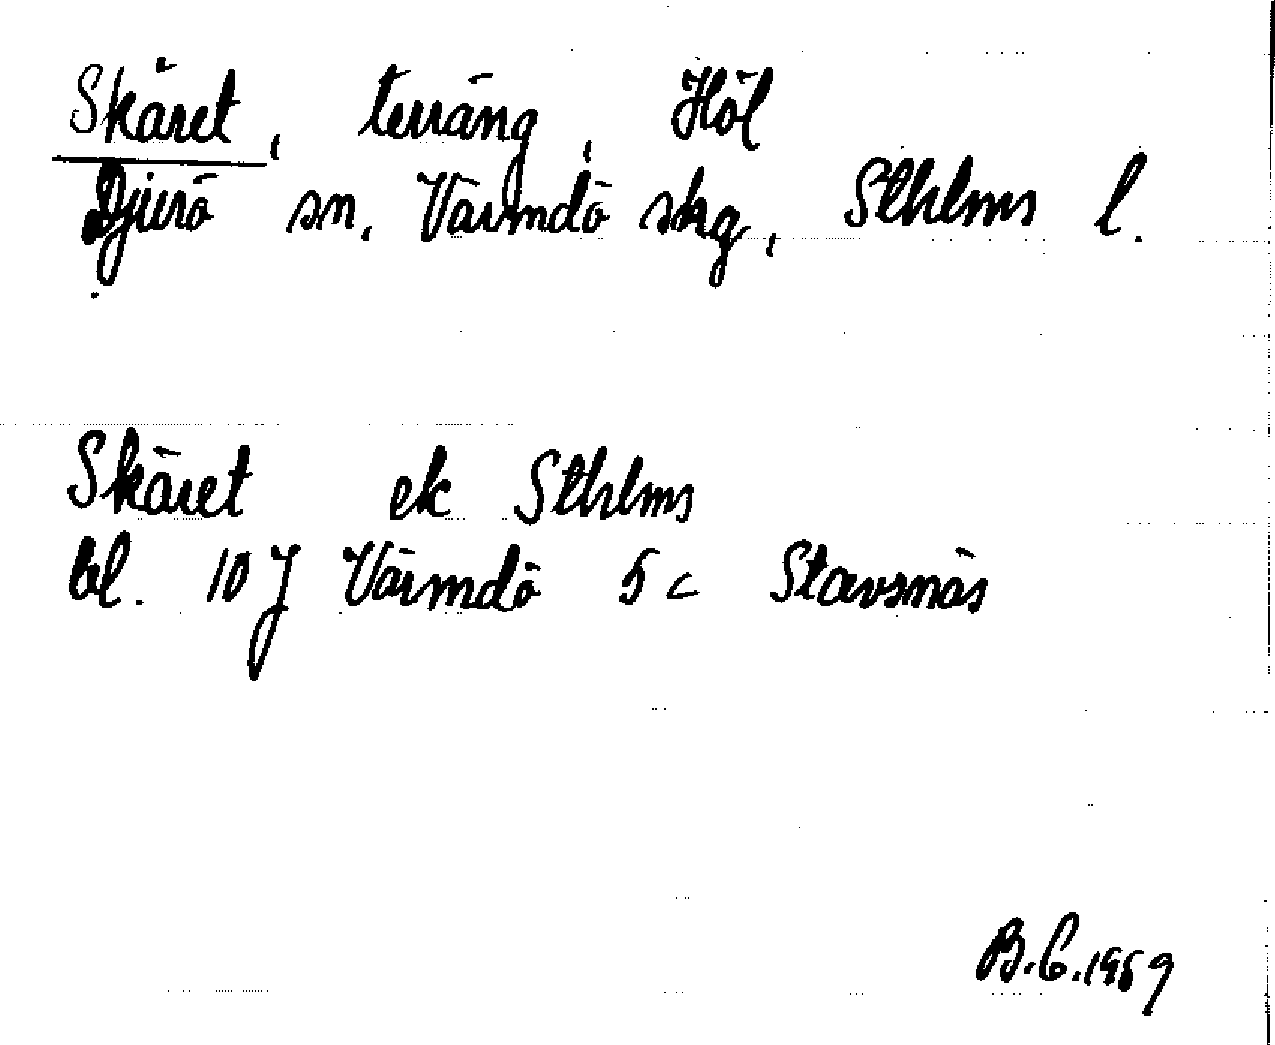 Skäret, terräng, Höl
Djurö sn. Värmdö skg, Sthlms l.
Skäret ek Sthlms
bl. 10 J Värmdö 5 c Stavsnäs
B.C.1959